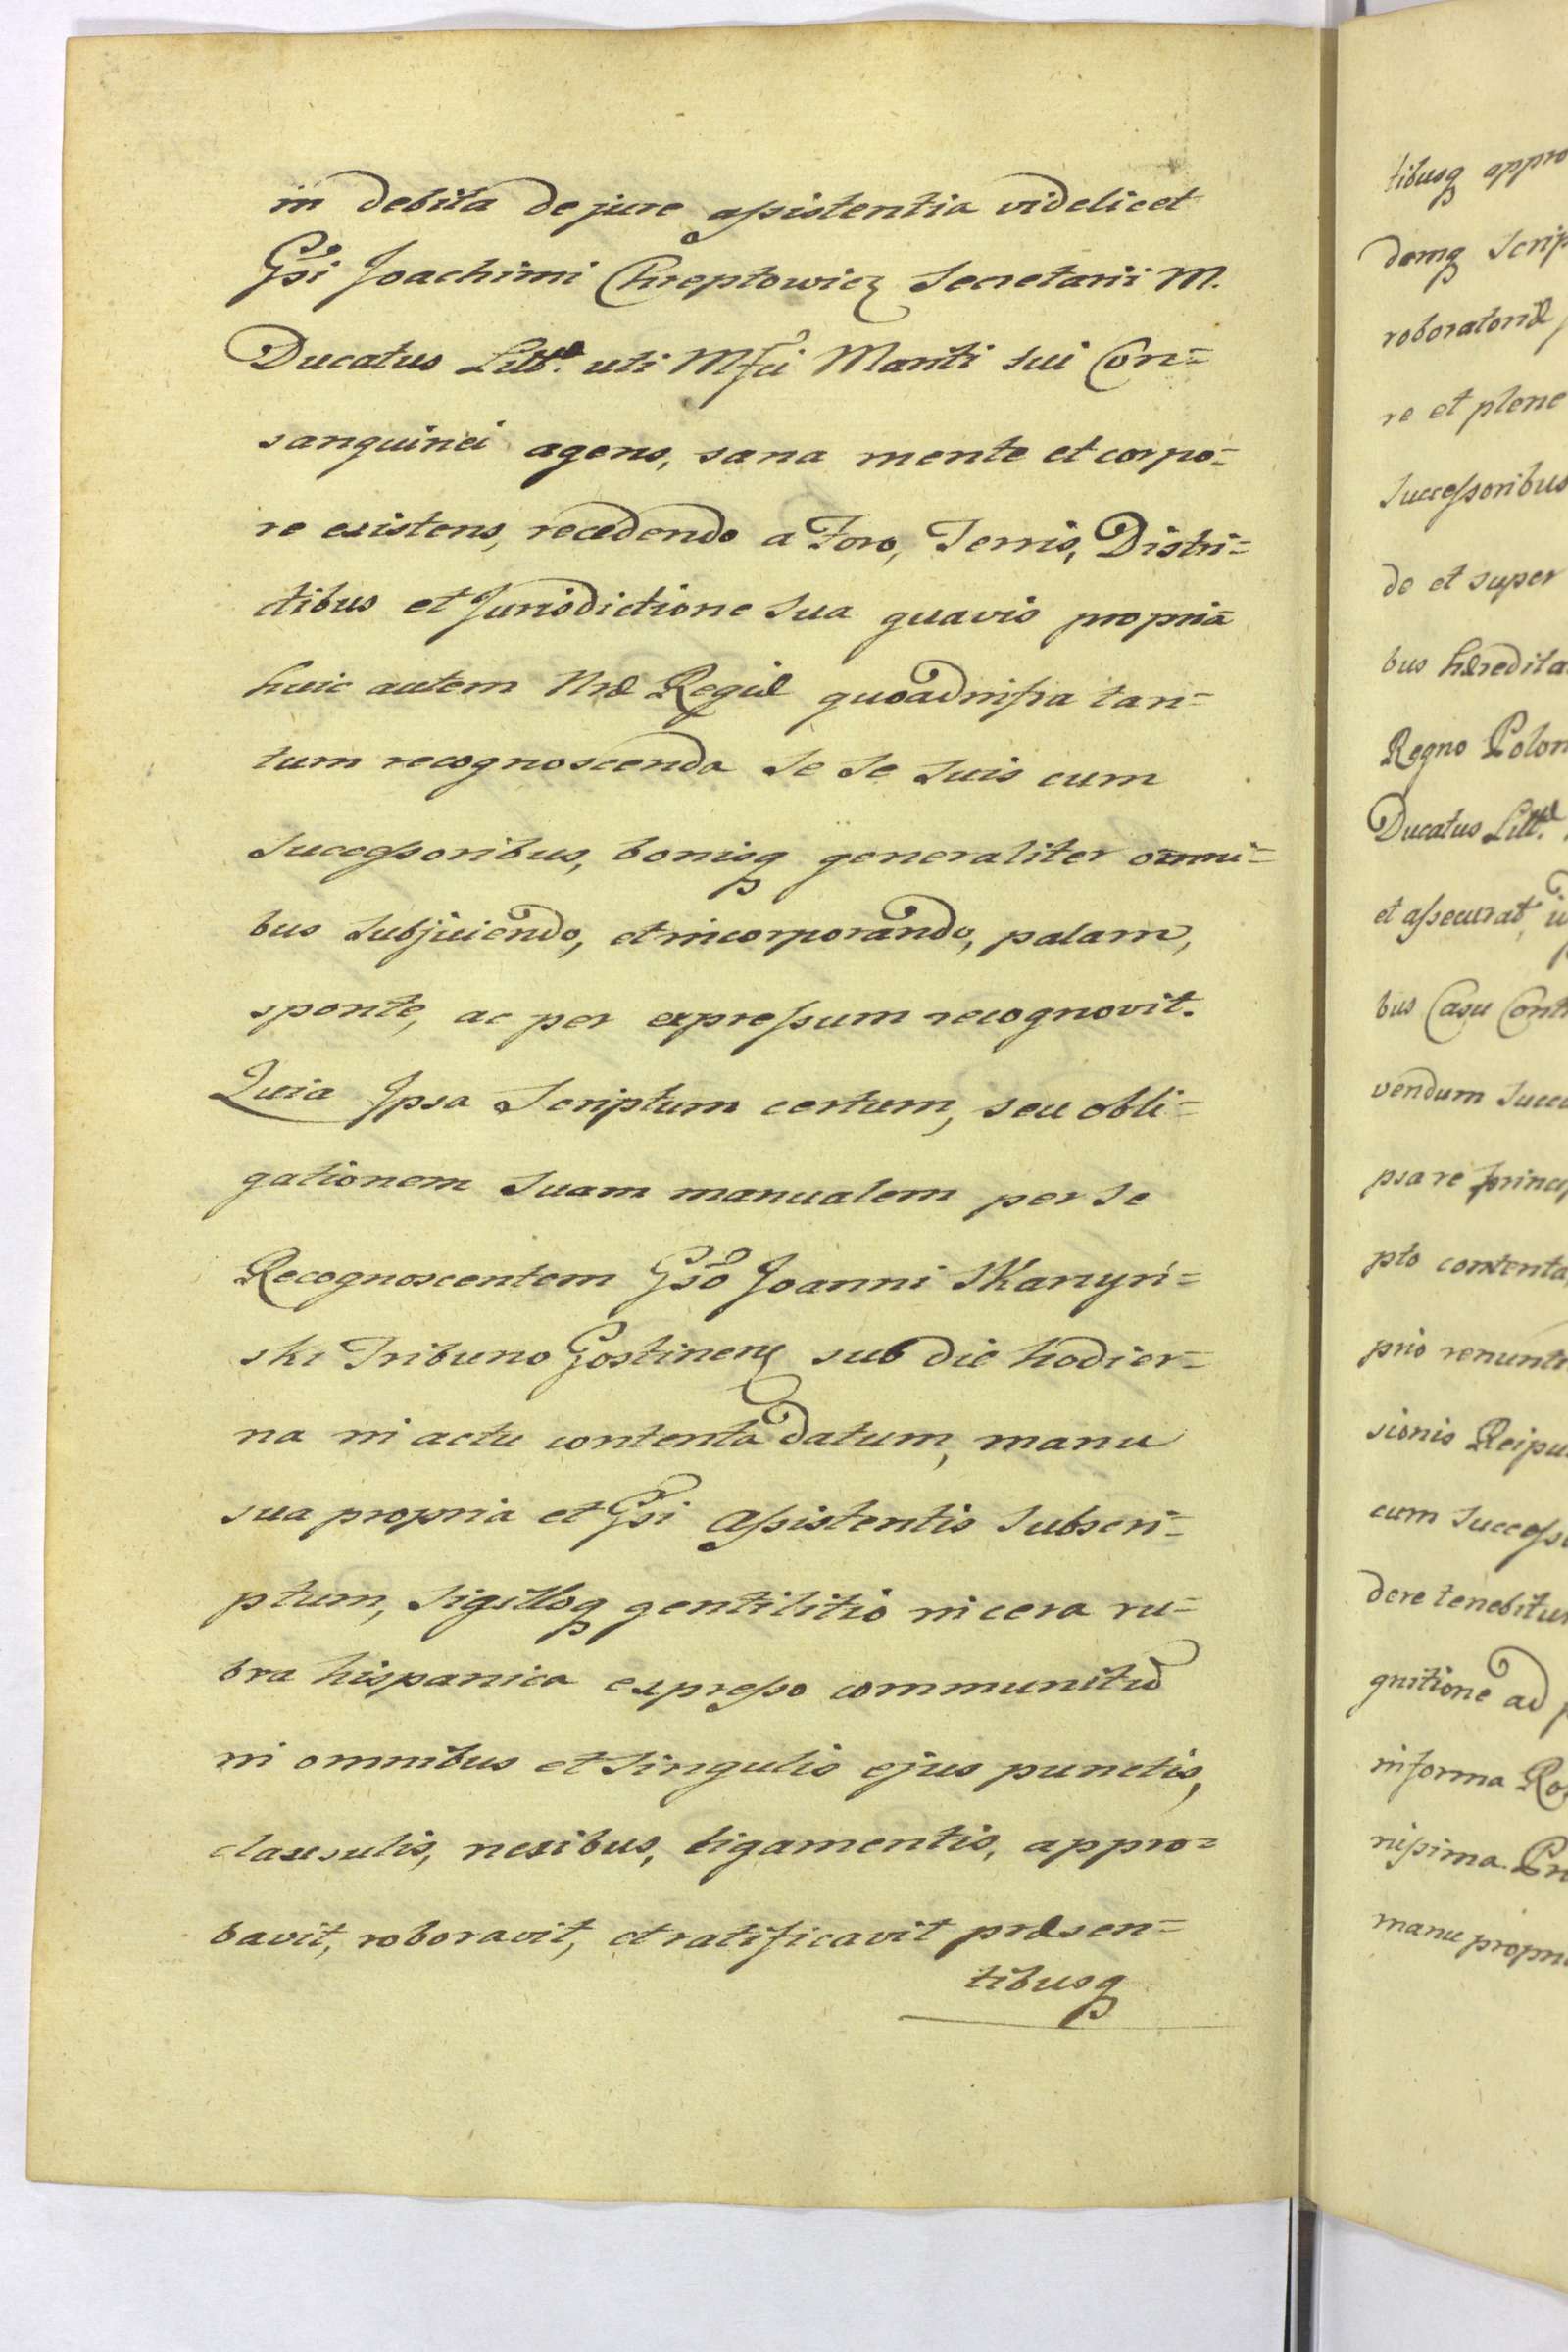 in debita de jure assistentia videlicet
Gsi Joachimi Chreptowicz Secretarii M.
Ducatus Littæ. uti Mfci Mariti sui Con=
sanguinei agens, sana mente et corpo=
re existens, recedendo a Foro, Terris, Distri=
ctibus et Jurisdictione sua quavis propria
huic autem Næ Regiæ quoad infra tan=
tum recognoscenda se se suis cum
successoribus, bonisq generaliter omni=
bus subjiciendo, et incorporando, palam,
sponte, ac per expressum recognovit.
Quia Ipsa Scriptum certum, seu obli=
gationem suam manualem per se
Recognoscentem Gso Joanni Skarzyń=
ski Tribuno Gostinens sub die hodier=
na in actu contenta datum, manu
sua propria et Gsi assistentis subscri=
ptum, sigilloq gentilitio in cera ru=
bra hispanica expresso communitū
in omnibus et singulis ejus punctis,
clausulis, nexibus, ligamentis, appro=
bavit, roboravit, et ratificavit præsen=
tibusq
tibusq appro
demq scrip
roboratoriæ
re et plene
successoribus
de et super
bus hæredita
Regno Polon
Ducatus Littæ.
et assecurat,
bus Casu Cont
vendum succe
psa re princip
pto contenta
prio renunti
sionis Reipu
cum success
dere tenebitur
gnitione ad
in forma Ro
nissima. Pr
manu propri